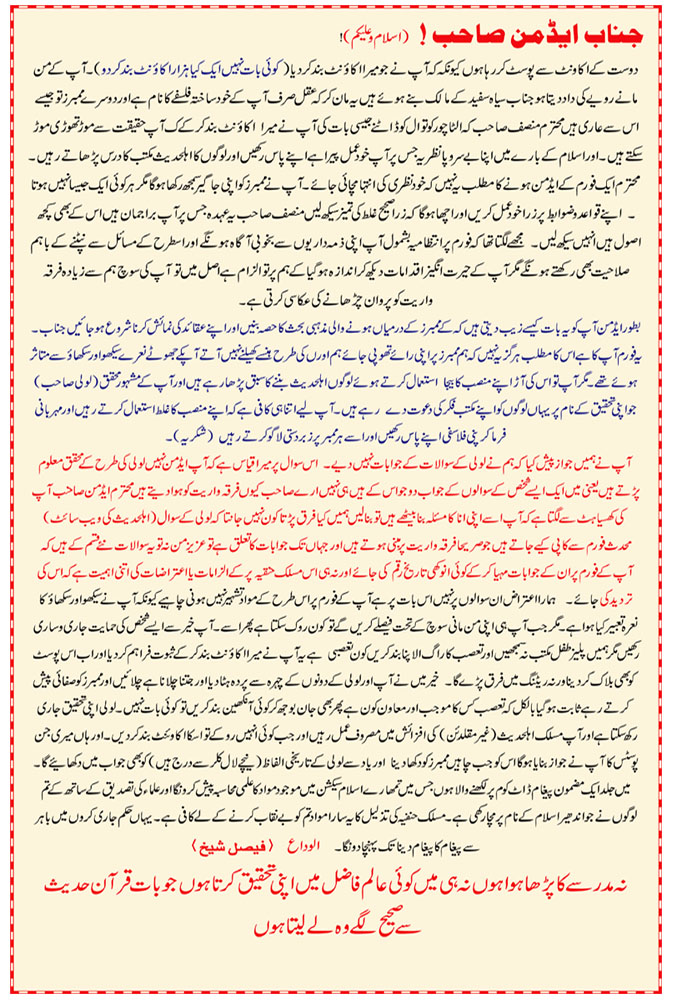 جناب ایڈمن صاحب ! (اسلام و علیکم)!
دوست کے اکاونٹ سے پوسٹ کر رہا ہوں کیونکہ کہ آپ نے جو میرا اکاؤنٹ بند کر دیا (کوئی بات نہیں ایک کیا ہزار اکاؤنٹ بند کر دو)۔ آپ کے من
مانے رویے کی داد دیتا ہو جناب سیاہ سفید کے مالک بنے ہوئے ہیں یہ مان کر کہ عقل صرف آپ کے خود ساختہ فلسفے کا نام ہے اور دوسرے ممبرز تو جیسے
اس سے عاری ہیں محترم منصف صاحب کہ الٹا چور کوتوال کو ڈانٹے جیسی بات کی آپ نے میرا اکاؤنٹ بند کر کے ک آپ حقیقت سے موڑ تھوڑی موڑ
سکتے ہیں۔ اور اسلام کے بارے میں اپنا بے سروپا نظریہ جس پر آپ خود عمل پیرا ہے اپنے پاس رکھیں اور لوگوں کا اہلحدیث مکتب کا درس پڑھاتے رہیں۔
محترم ایک فورم کے ایڈمن ہونے کا مطلب یہ نہیں کہ خود نظری کی انتہا مچائی جائے۔ آپ نے ممبرز کو اپنی جاگیر سمجھ رکھا ہوگا مگر ہر کوئی ایک جیسا نہیں ہوتا
۔ اپنے قواعد و ضوابط پر زرا خود عمل کریں اور اچھا ہوگا کہ زرا صحیح غلط کی تمیز سیکھ لیں منصف صاحب یہ عہدہ جس پر آپ براجمان ہیں اس کے بھی کچھ
اصول ہیں انہیں سیکھ لیں۔ مجھے لگتا تھا کہ فورم پر انتظامیہ بشمول آپ اپنی ذمہ داریوں سے بخوبی آگاہ ہونگے اور اسطرح کے مسائل سے نپٹنے کے باہم
صلاحیت بھی رکھتے ہونگے مگر آپ کے حیرت انگیز اقدامات دیکھ کر اندازہ ہوگیا کے ہم پر تو الزام ہے اصل میں تو آپ کی سوچ ہم سے زیادہ فرقہ
واریت کو پروان چڑھانے کی عکاسی کرتی ہے۔
بطور ایڈمن آپ کو یہ بات کیسے زیب دیتی ہیں کہ کے ممبرز کے درمیاں ہونے والی مذہبی بحث کا حصہ بنیں اور اپنے عقائد کی نمائش کرنا شروع ہو جائیں جناب۔
یہ فورم آپ کا ہے اس کا مطلب ہر گز یہ نہیں کہ ہم ممبرز پر اپنی رائے تھوپی جائے ہم اوروں کی طرح ہنسے کھیلنے نہیں آتے آپکے جھوٹے نعرے سیکھو اور سکھاؤ سے متاثر
ہوئے تھے۔ مگر آپ تو اس کی آڑ اپنے منصف کا بیجا استعمال کرتے ہوئے لوگوں اہلحدیث بننے کا سبق پڑھا رہے ہیں اور آپ کے مشہور محقق (لولی صاحب)
جو اپنی تحقیق کے نام پر یہاں لوگوں کو اپنے مکتب فکر کی دعوت دے رہے ہیں۔ آپ لیے اتنا ہی کافی ہے کہ اپنے منصف کا غلط استعمال کرتے رہیں اور مہربانی
فرما کر اپنی فلاسفی اپنے پاس رکھیں اور اسے ہر ممبر پر زبردستی لاگو کرتے رہیں (شکریہ)۔
آپ نے ہمیں جواز پیش کیا کہ ہم نے لولی کے سوالات کے جوابات نہیں دیے۔ اس سوال پر میرا قیاس ہے کہ آپ ایڈمن نہیں لولی کی طرح کے محقق معلوم
پڑتے ہیں یعنی میں ایک ایسے شخص کے سوالوں کے جواب دو جو اس کے ہیں ہی نہیں ارے صاحب کیوں فرقہ واریت کو ہوا دیتے ہیں محترم ایڈمن صاحب آپ
کی کھسیاہٹ سے لگتا ہے کہ آپ اسے اپنی انا کا مسئلہ بنا بیٹھے ہیں تو بنا لیں ہمیں کیا فرق پڑتا کون نہیں جانتا کہ لولی کے سوال (اہلحدیث کی ویب سائٹ)
محدث فورم سے کاپی کیے جاتے ہیں جو صریحا فرقہ واریت پر مبنی ہوتے ہیں اور جہاں تک جوابات کا تعلق ہے تو عزیز من نہ تو یہ سوالات نئے قسم کے ہیں کہ
آپ کے فورم پر ان کے جوابات مہیا کر کے کوئی انوکھی تاریخ رقم کی جائے اور نہ ہی اس مسلک حنفیہ پر کے الزامات یا اعتراضات کی اتنی اہمیت ہے کہ اس کی
تردید کی جائے۔ ہمارا اعتراض ان سوالوں پر نہیں اس بات پر ہے آپ کے فورم پر اس طرح کے مواد تشہیر نہیں ہونی چاہیے کیونکہ آپ نے سیکھو اور سکھاؤ کا
نعرہ تعبیر کیا ہوا ہے۔ مگر جب آپ ہی اپنی من مانی سوچ کے تحت فیصلے کریں گے تو کون روک سکتا ہے پھر اسے۔ آپ خیر سے ایسے شخص کی حمایت جاری و ساری
رکھیں مگر ہمیں پلیز طفل مکتب نہ سمجھیں اور تعصب کا راگ الاپنا بند کریں کون تعصبی ہے یہ آپ نے میرا اکاؤنٹ بند کر کے ثبوت فراہم کر دیا اور اب اس پوسٹ
کو بھی بلاک کر دینا ورنہ ریٹنگ میں فرق پڑے گا۔ خیر میں نے آپ اور لولی کے دونوں کے چہرہ سے پردہ ہٹا دیا اور جتنا چلانا ہے چلائیں اور ممبرز کو صفائی پیش
کرتے رہے ثابت ہو گیا بالکل کہ تعصب کس کا موجب اور معاون کون ہے پھر بھی جان بوجھ کر کوئی آنکھیں بند کریں تو کوئی بات نہیں۔ لولی اپنی تحقیق جاری
رکھ سکتا ہے اور آپ مسلک اہلحدیث (غیر مقلدین) کی افزائش میں مصروف عمل رہیں اور جب کوئی انہیں روکے تو اسکا اکاؤنٹ بند کر دیں۔ اور ہاں میری جن
پوسٹس کا آپ نے جواز بنایا ہوگا اس کو جب چاہیں ممبرز کو دکھا دینا اور یاد سے لولی کے تاریخی الفاظ (نیچے لال کلر سے درج ہیں) کو بھی جواب میں دکھائیے گا۔
میں جلد ایک مضمون پیغام ڈاٹ کوم پر لکھنے والا ہوں جس میں تمھارے اسلام سیکشن میں موجود مواد کا علمی محاسبہ پیش کرونگا اور علماء کی تصدیق کے ساتھ کے تم
لوگوں نے جو اندھیر اسلام کے نام پر مچا رکھی ہے۔ مسلک حنفیہ کی تذلیل کا یہ سارا مواد تم کو بے نقاب کرنے کے لے کافی ہے۔ یہاں حکم جاری کروں میں باہر
سے پیغام کا پیغام دینا تک پہنچا دونگا۔ الوداع (فیصل شیخ)
نہ مدرسے کا پڑھا ہوا ہوں نہ ہی میں کوئی عالم فاضل میں اپنی تحقیق کرتا ہوں جو بات قرآن حدیث
سے صحیح لگے وہ لے لیتا ہوں